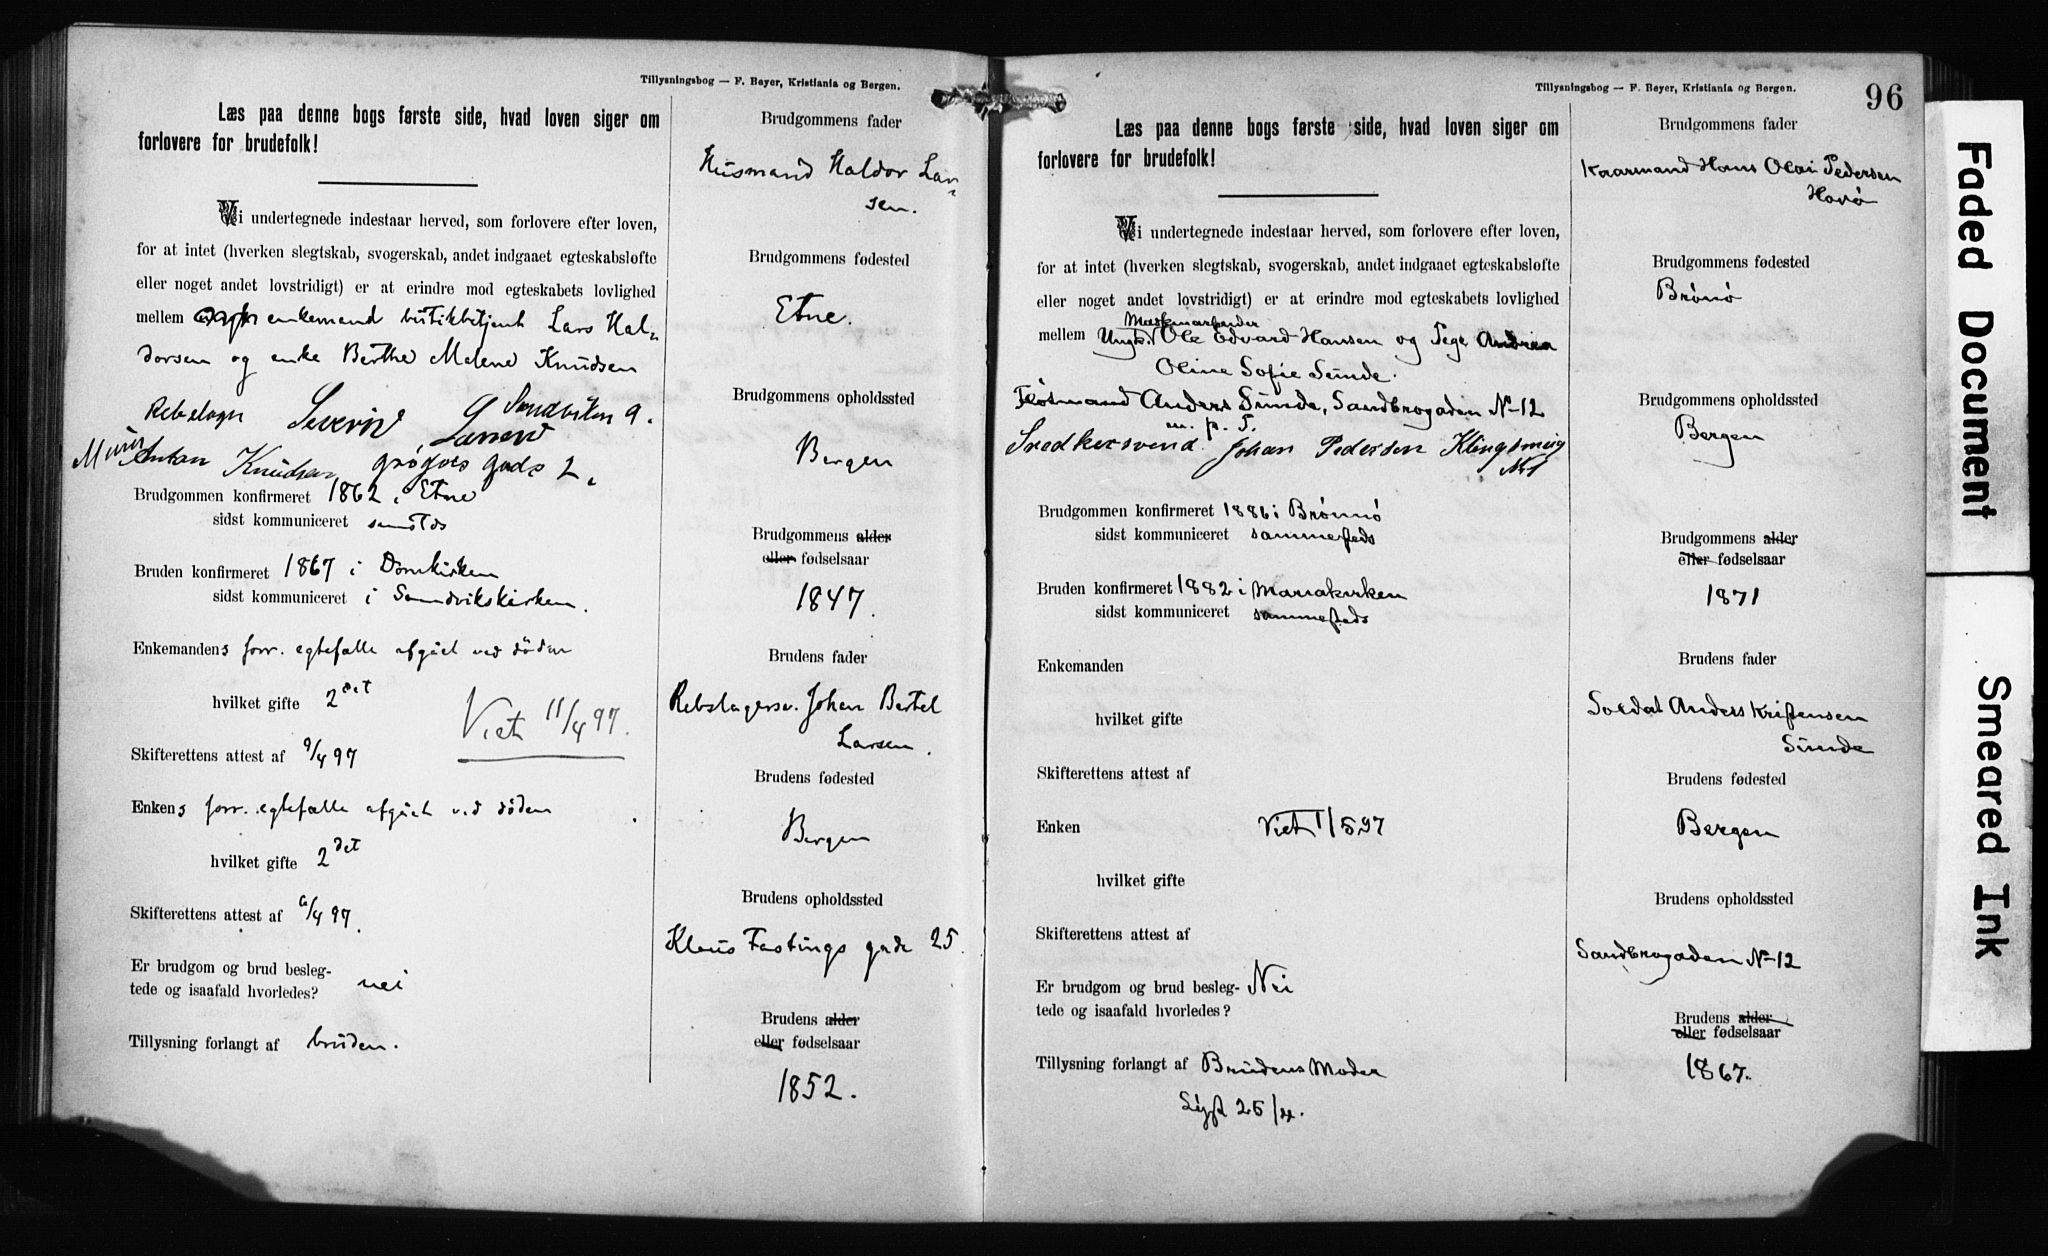 Tillysningsbog — F. Beyer, Kristiania og Bergen.
Læs paa denne bogs første side, hvad loven siger om
forlovere for brudefolk!
Vi undertegnede indestaar herved, som forlovere efter loven,
for at intet (hverken slegtskab, svogerskab, andet indgaaet egteskabsløfte
eller noget andet lovstridigt) er at erindre mod egteskabets lovlighed
mellem enkemand butikbetjent Lars Hal-
dorsen og enke Berthe Malene Knudsen
Rebslager Severin Larsen Sandviken 9.
Murer Anton Knudsen, gade 2.
Brudgommen konfirmeret 1862 i Etne
sidst kommuniceret samstds
Bruden konfirmeret 1867 i Domkirken
sidst kommuniceret i Sandvikskirken.
Enkemandens forr. egtefælle afgået ved døden
hvilket gifte 2det
Viet 11/4 97.
Skifterettens attest af 9/4 97
Enkens forr. egtefælle afgået ved døden
hvilket gifte 2det
Skifterettens attest af 6/4 97.
Er brudgom og brud besleg-
tede og isaafald hvorledes? nei
Tillysning forlangt af bruden.
Brudgommens fader
Husmand Haldor Lar-
sen.
Brudgommens fødested
Etne.
Brudgommens opholdssted
Bergen
Brudgommens alder
eller fødselsaar
1847.
Brudens fader
Rebslagersv. Johan Bertel
Larsen.
Brudens fødested
Bergen
Brudens opholdssted
Klaus Fastings gade 25.
Brudens alder
eller fødselsaar
1852.
Tillysningsbog — F. Beyer, Kristiania og Bergen.
96
Læs paa denne bogs første side, hvad loven siger om
forlovere for brudefolk!
Vi undertegnede indestaar herved, som forlovere efter loven,
for at intet (hverken slegtskab, svogerskab, andet indgaaet egteskabsløfte
eller noget andet lovstridigt) er at erindre mod egteskabets lovlighed
Maskinarbeider
mellem Ungk. Ole Edvard Hansen og Pige Andrea
Oline Sofie Sunde.
Fløtmand Anders Sunde, Sandbrogaden No 12
m. p. P.
Snedkersvend Johan Pedersen Klingsmug
No 1
Brudgommen konfirmeret 1886 i Brønnø
sidst kommuniceret sammesteds
Bruden konfirmeret 1882 i Mariakirken
sidst kommuniceret sammesteds
Enkemanden
hvilket gifte
Skifterettens attest af
Enken
Viet 1/5 97
hvilket gifte
Skifterettens attest af
Er brudgom og brud besleg- Nei
tede og isaafald hvorledes?
Tillysning forlangt af Brudens Moder
Lyst 25/4.
Brudgommens fader
Kaarmand Hans Olai Pedersen
Havø
Brudgommens fødested
Brønø
Brudgommens opholdssted
Bergen
Brudgommens alder
eller fødselsaar
1871
Brudens fader
Soldat Anders Kristensen
Sunde
Brudens fødested
Bergen
Brudens opholdssted
Sandbrogaden No 12
Brudens alder
eller fødselsaar
1867.
Faded Document
Smeared Ink